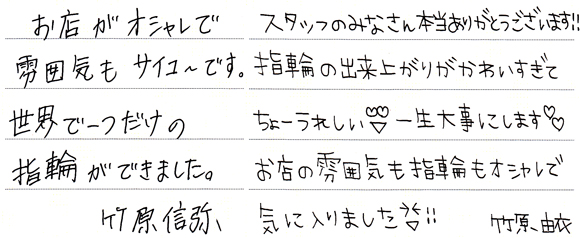 お店がオシャレで
雰囲気もサイコ〜です。
世界で一つだけの
指輪ができました。
竹原信弥、
スタッフのみなさん本当ありがとうございます!!
指輪の出来上がりがかわいすぎて
ちょーうれしい 一生大事にします♡♡
お店の雰囲気も指輪もオシャレで
気に入りました!!
竹原、由衣